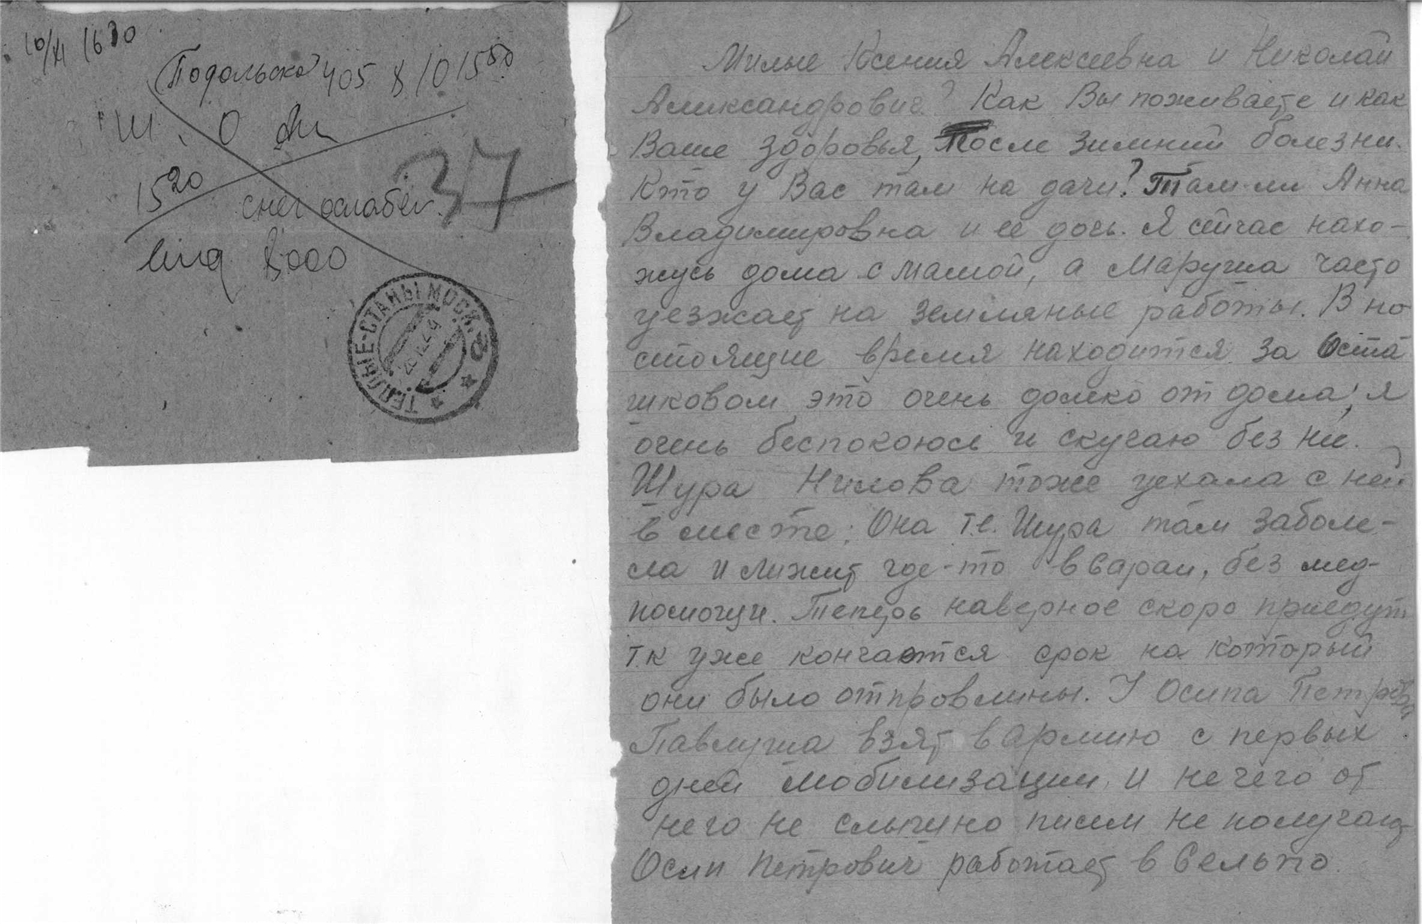 10/XI 1630
Подольска 405 8/10 15 50
Ш. О
15 20
снег ослабел
37
8000
ТЕПЛЫЕ-СТАНЫ МОСК.
Милые Ксения Алексеевна и Николай
Александрович? Как Вы поживаете и как
Ваше здоровья, После зимний болезни.
Кто у Вас там на дачи? Там-ли Анна
Владимировна и её дочь. Я сейчас нахо-
жусь дома с мамой, а Маруша часто
уезжает на земляные работы. В на
стоящие время находится за Оста
шковом это очень долеко от дома, я
очень беспокоюсь и скучаю без ни.
Шура Нилова тоже уехала с ней
в месте. Она т.е. Шура там заболе-
ла и лижит где-то в сараи, без мед-
помощи. Теперь наверное скоро приедут
тк уже кончаются срок на который
они было отпровлины. У Осипа Петровича
Павлуша взят в Армию с первых
дней мобилизации и не чего от
него не слышно писем не получают
Осип Петрович работает в Сельпо